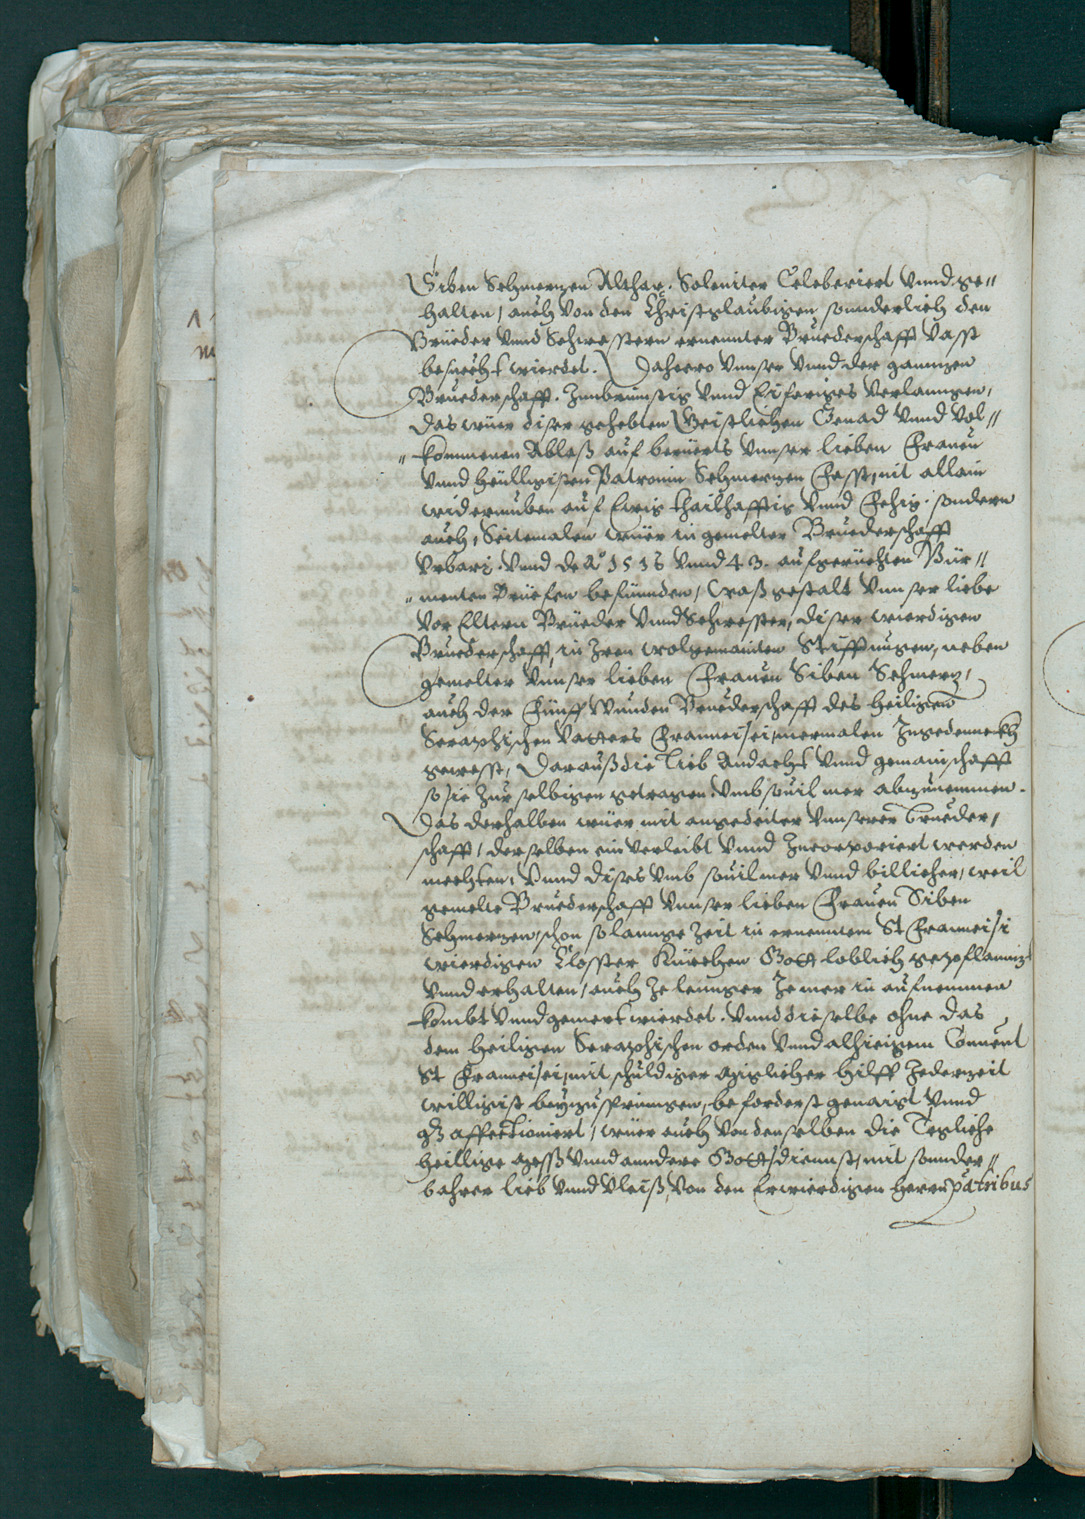 Siben Schmerzen Althar. Soleniter Celebriert vnnd ge¬
halten, auch von den Christglaubigen sonnderlich den
Brüeder vnnd Schwesstern ernennter Bruederschafft vasst
besuecht wierdet. Dahero vnnser vnnd der ganntzen
Bruederschafft. Innbrünstig vnnd Eiferiges verlanngen,
das wüer diser gehebten Geistlichen Genad vnnd Vol¬
kommenen Ablaß auf berüerts vnnser lieben Frauen
vnnd heilligisten Patronin Schmerzen Fesst, nit allain
widerumben auf Ewig thailhafftig vnnd Fehig. sondern
auch, Seitemalen wüer in gemelter Bruederschafft
Vrbarj. vnnd de Aō 1515 vnnd 43. aufgerichten Pür¬
menten Brüefen befünnden, waß gestalt vnnser liebe
vor Eltern Brüeder vnnd Schwesster, diser wierdigen
Bruederschafft, in Iren wolgemainten Stifftungen, neben
gemelter vnnser lieben Frauen Siben Schmerz,
auch der Fünff Wunden Bruederschafft des heiligen
Seraphischen Vatters Francisci, mermalen Ingedennckh
gewesst, Darauß die Lieb Andacht vnnd gemainschafft
so sie zur selbigen getragen. vmb souil mer abzunemmen.
Das derhalben wüer mit angedeiter vnnserer Brueder,
schafft, derselben ein verleibt vnnd Incorporiert werden
mechten, vnnd dises vmb souil mer vnnd billicher, weil
gemelte Bruederschafft vnnser lieben Frauen Siben
Schmerzen, schon so lannge Zeit in ernenntem St Francisci
wierdigen Closster Kürchen Gott loblich gepflannzt
vnnd erhalten, auch Je lennger Je mer in aufnemmen
kombt vnnd gemert wierdet. vnnd dieselbe ohne das
dem heiligen Seraphischen orden vnnd alhieigem Conuent
St Francisci, mit schuldiger giglicher hilff Jederzeit
willigist beyzuspringen, befoderst genaigt vnnd
gz affectioniert, wüer auch von denselben die Tegliche
heillige Mess vnnd anndere Gottsdiennst, mit sonnder¬
bahrer lieb vnnd Vleiß, von den Erwierdigen herrn patribus